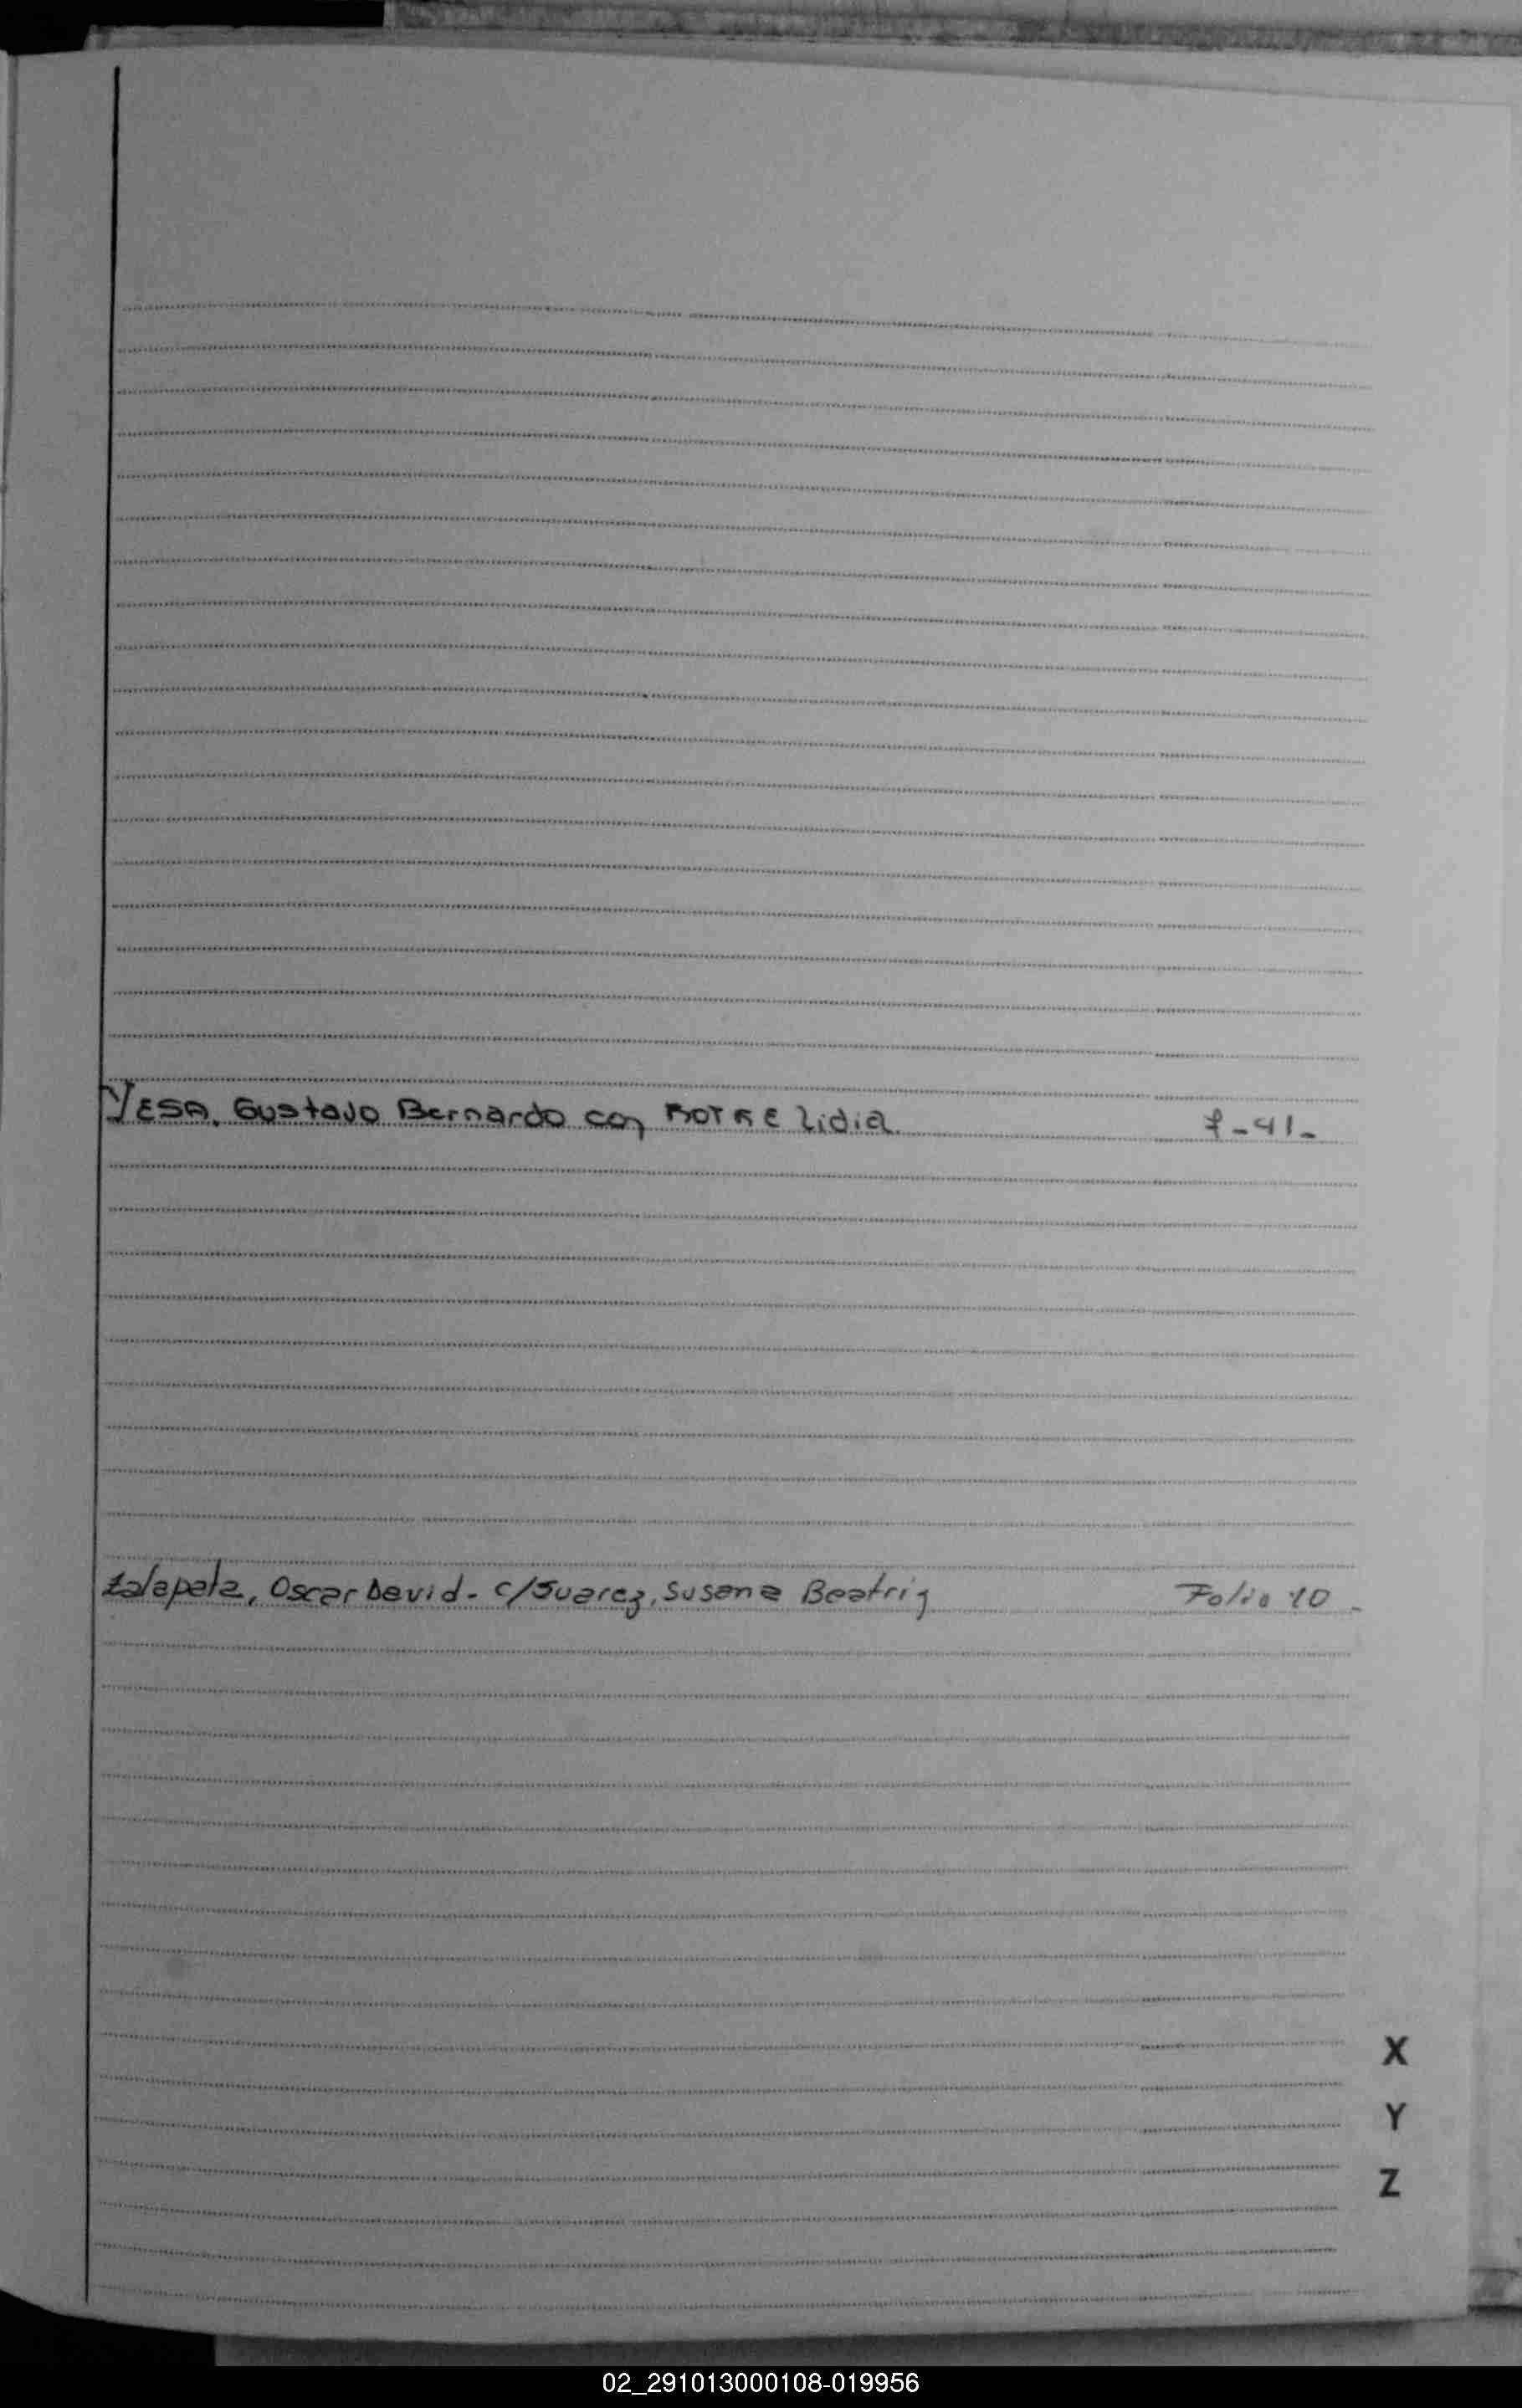 YESA, Gustavo Bernardo con BOTRE Lidia. f-41-
Zalapata, Oscar David - c/Suarez, Susana Beatriz Folio 10 -
X
Y
Z
02_291013000108-019956